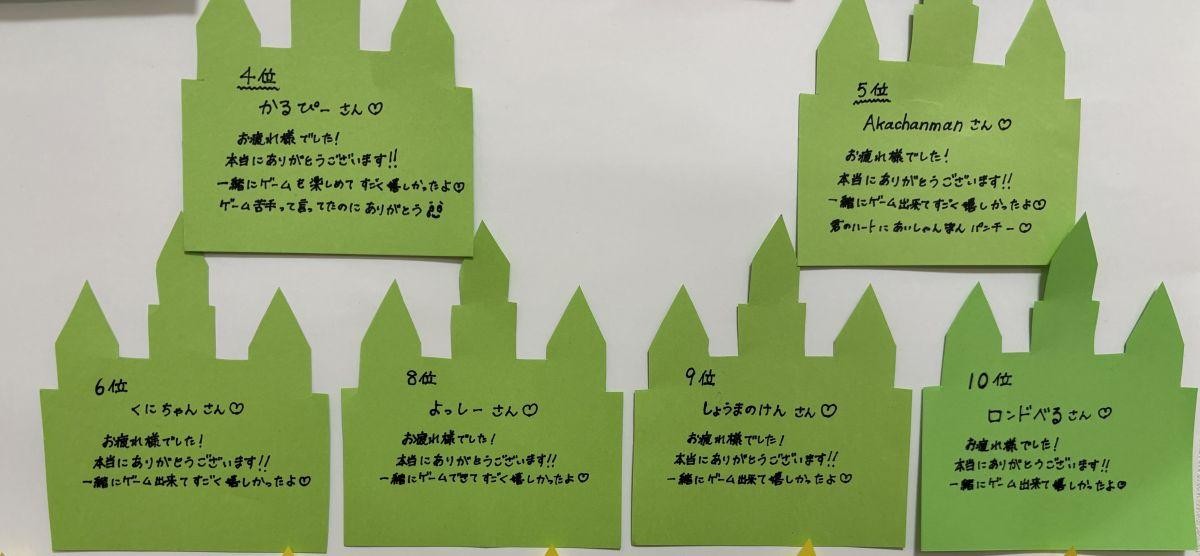 4位
かるぴーさん♡
お疲れ様でした!
本当にありがとうございます!!
一緒にゲームを楽しめてすごく嬉しかったよ♡
ゲーム苦手って言ってたのにありがとう
5位
Akachanmanさん♡
お疲れ様でした!
本当にありがとうございます!!
一緒にゲーム出来てすごく嬉しかったよ♡
君のハートにあいしゃんまんパンチー♡
6位
くにちゃんさん♡
お疲れ様でした!
本当にありがとうございます!!
一緒にゲーム出来てすごく嬉しかったよ♡
8位
よっしーさん♡
お疲れ様でした!
本当にありがとうございます!!
一緒にゲームできてすごく嬉しかったよ♡
9位
しょうまのけんさん♡
お疲れ様でした!
本当にありがとうございます!!
一緒にゲーム出来てすごく嬉しかったよ♡
10位
ロンドベるさん♡
お疲れ様でした!
本当にありがとうございます!!
一緒にゲーム出来て嬉しかったよ♡